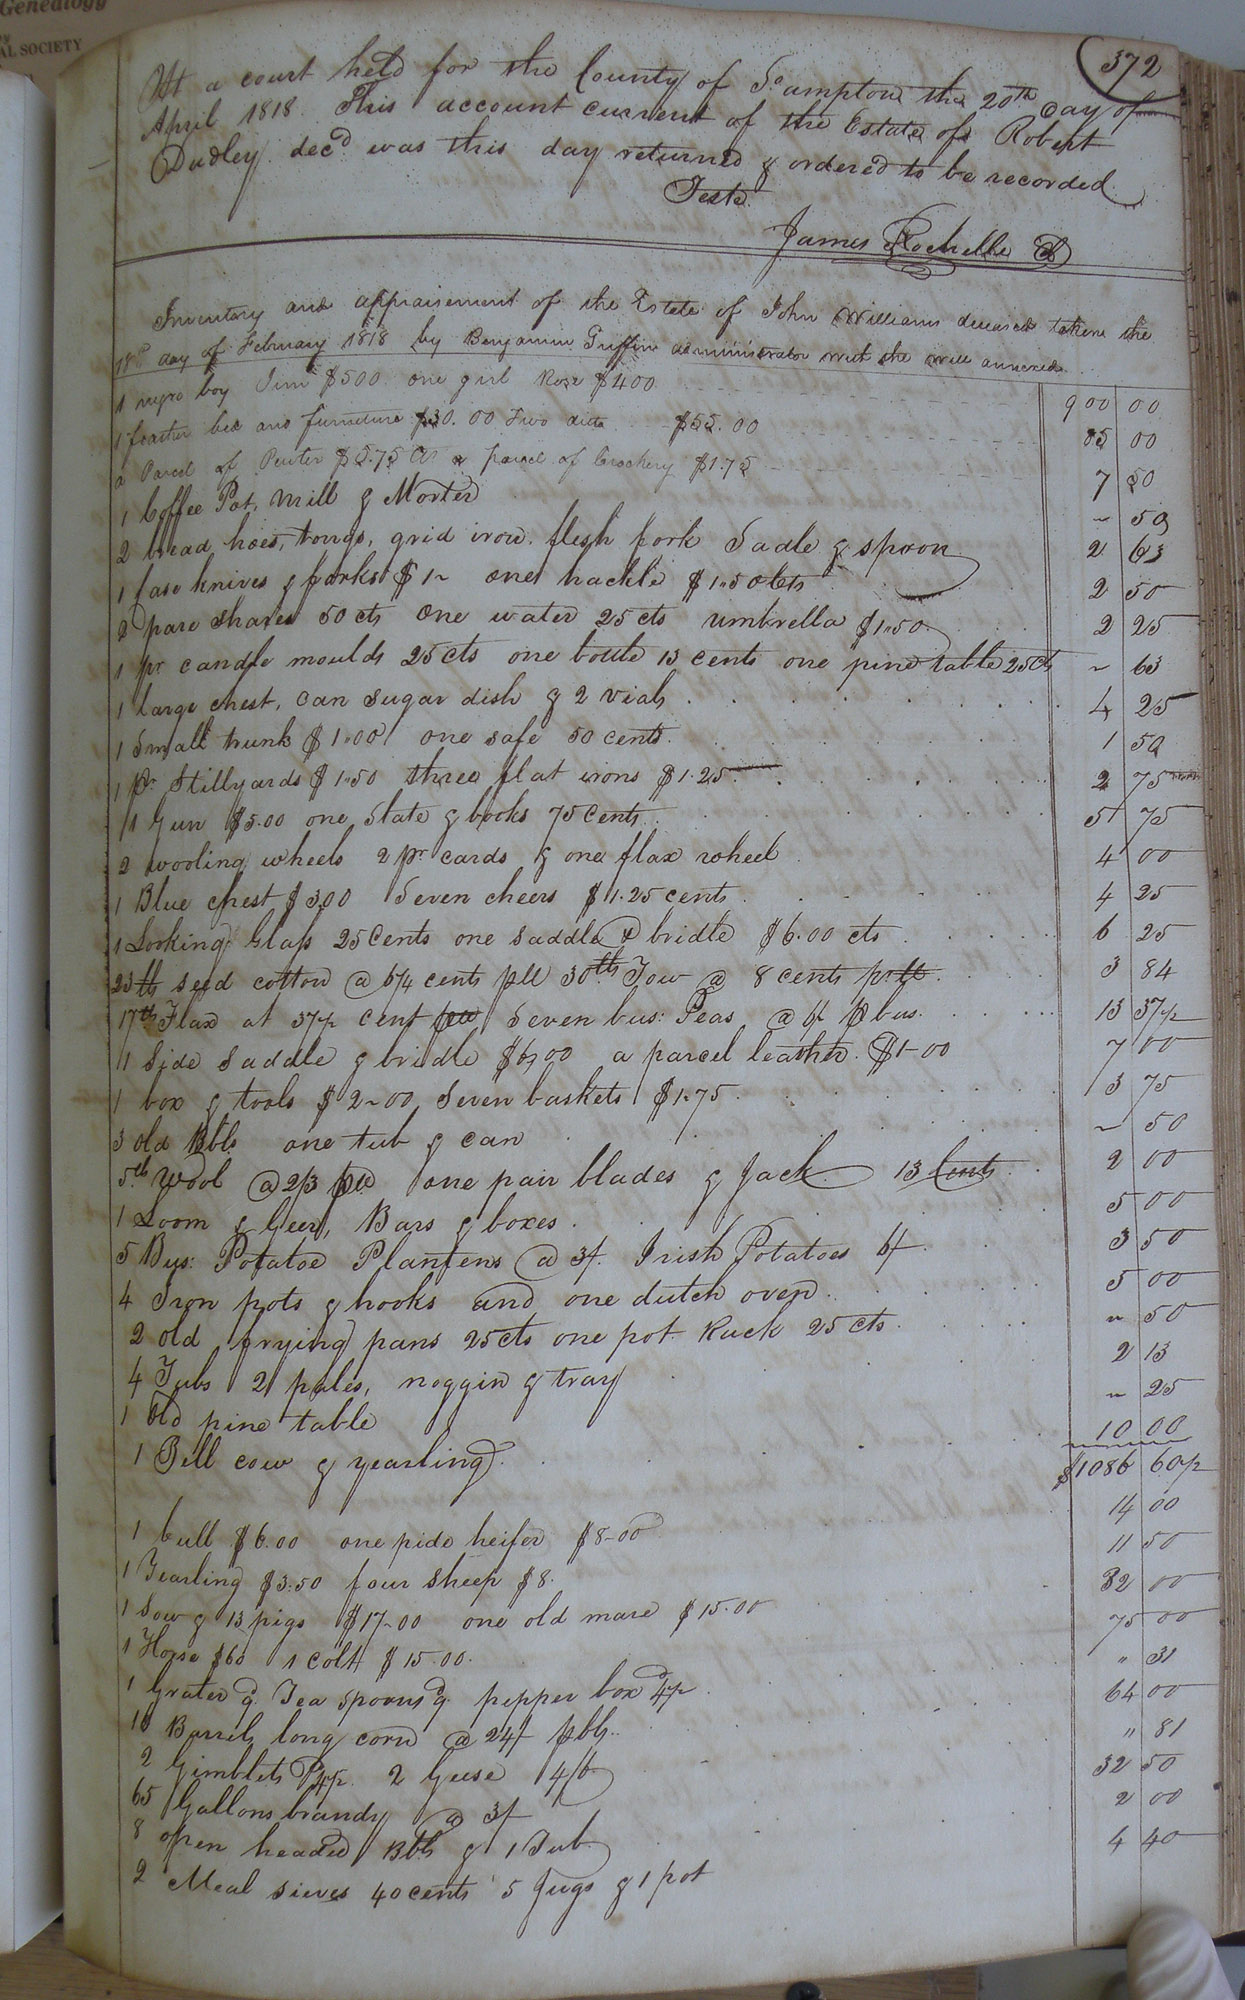 Genealogy
AL SOCIETY
372
At a court held for the County of So.ampton the 20th day of
April 1818. This account current of the Estate of Robert
Dudley decd. was this day returned & ordered to be recorded.
Teste
James Rochelle
Inventory and appraisement of the Estate of John Williams deceased taken the
day of February 1818 by Benjamin Griffin administrator with the will annexed
1 negro boy Jim $500. one girl Rose $400 900 00
1 feather bed and furniture $30.00 Two ditto $55.00 85 00
a Parcel of Pewter $5.75 a parcel of Crockery $1.75 7 50
1 Coffee Pot, Mill & Morter ~ 50
2 bread hoes, tongs, grid iron. flesh fork Sadle & spoon 2 63
1 Case knives & forks $1~ one hackle $1.50 cts 2 50
2 pare shares 50 cts one water 25 cts umbrella $1.50. 2 25
1 pr candle moulds 25 cts one bottle 13 cents one pine table 25 cts ~ 63
1 large chest, can sugar dish & 2 vials 4 25
1 Small trunk $1.00 one safe 50 cents. 1 50
1 pr. Stillyards $1.50 three flat irons $1.25 2 75
1 Gun $5.00 one Slate & books 75 Cents. 5 75
2 wooling wheels 2 pr cards & one flax wheel 4 00
1 Blue chest $3.00 Seven cheers $1.25 cents 4 25
1 Looking Glass 25 Cents one Saddle & bridle $6.00 cts 6 25
23 lb seed cotton @ 6/4 cents 30 lb. Tow @ 8 cents 3 84
17 lb Flax at 37½ cent Seven bus: Peas @ 6/ bus. 13 37½
1 Side Saddle & bridle $6.00 a parcel leather. $1-00 7 00
1 box & tools $2~00 Seven baskets $1.75 3 75
3 old Bbls one tub & can ~ 50
5 lb Wool @ 2/3 one pair blades & Jack 13 Cents 2 00
1 Loom & Geer, Bars & boxes. 5 00
5 Bus: Potatoe Plantens @ 3/. Irish Potatoes 6/ 3 50
4 Iron pots & hooks and one dutch oven 5 00
2 old frying pans 25 cts one pot Rack 25 cts ~ 50
4 Tubs 2 pales, noggin & tray 2 13
1 Old pine table ~ 25
1 Bell cow & yearling 10 00
$1086 60½
1 bull $6.00 one pide heifer $8-00 14 00
1 Yearling $3.50 four sheep $8. 11 50
1 Sow & 13 pigs $17-00 one old mare $15.00 32 00
1 Horse $60 1 Colt $15.00. 75 00
1 Grater Tea spoons pepper box " 31
16 Barrels long corn @ 24/ pbl. 64 00
2 Gimblets 2 Geese 4/6 " 81
65 Gallons brandy @ 3/ 32 50
8 open headed Bbls & 1 Tub 2 00
2 Meal sieves 40 cents 5 Jugs & 1 pot 4 40